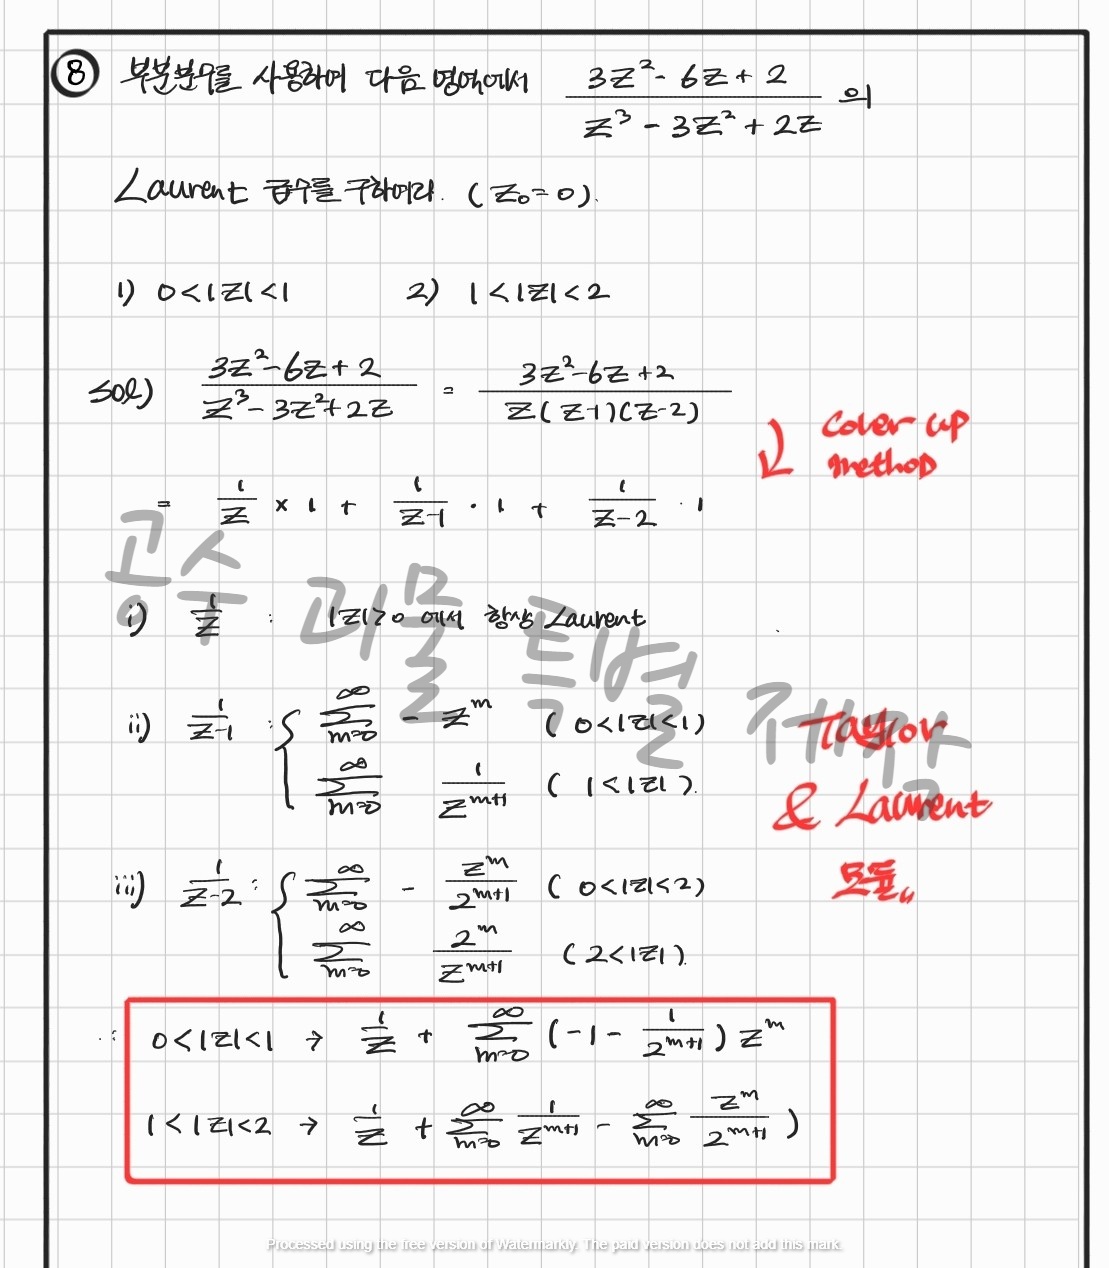 ⑧ 부분분수를 사용하여 다음 영역에서 (3z² - 6z + 2)/(z³ - 3z² + 2z) 의
Laurent 급수를 구하여라. (z₀=0).
1) 0<|z|<1 2) 1<|z|<2
sol) (3z²-6z+2)/(z³-3z²+2z) = (3z²-6z+2)/(z(z-1)(z-2))
cover up
method
= 1/z × 1 + 1/(z-1) · 1 + 1/(z-2) · 1
공수 과물 특별 제작
i) 1/z : |z|>0 에서 항상 Laurent
ii) 1/(z-1) : { ∑_{m=0}^{∞} - z^m (0<|z|<1)
∑_{m=0}^{∞} 1/z^{m+1} (1<|z|).
Taylor
& Laurent
모듈〃
iii) 1/(z-2) : { ∑_{m=0}^{∞} - z^m/2^{m+1} (0<|z|<2)
∑_{m=0}^{∞} 2^m/z^{m+1} (2<|z|).
∴ 0<|z|<1 → 1/z + ∑_{m=0}^{∞} (-1 - 1/2^{m+1}) z^m
1<|z|<2 → 1/z + ∑_{m=0}^{∞} 1/z^{m+1} - ∑_{m=0}^{∞} z^m/2^{m+1} )
Processed using the free version of Watermarkly. The paid version does not add this mark.